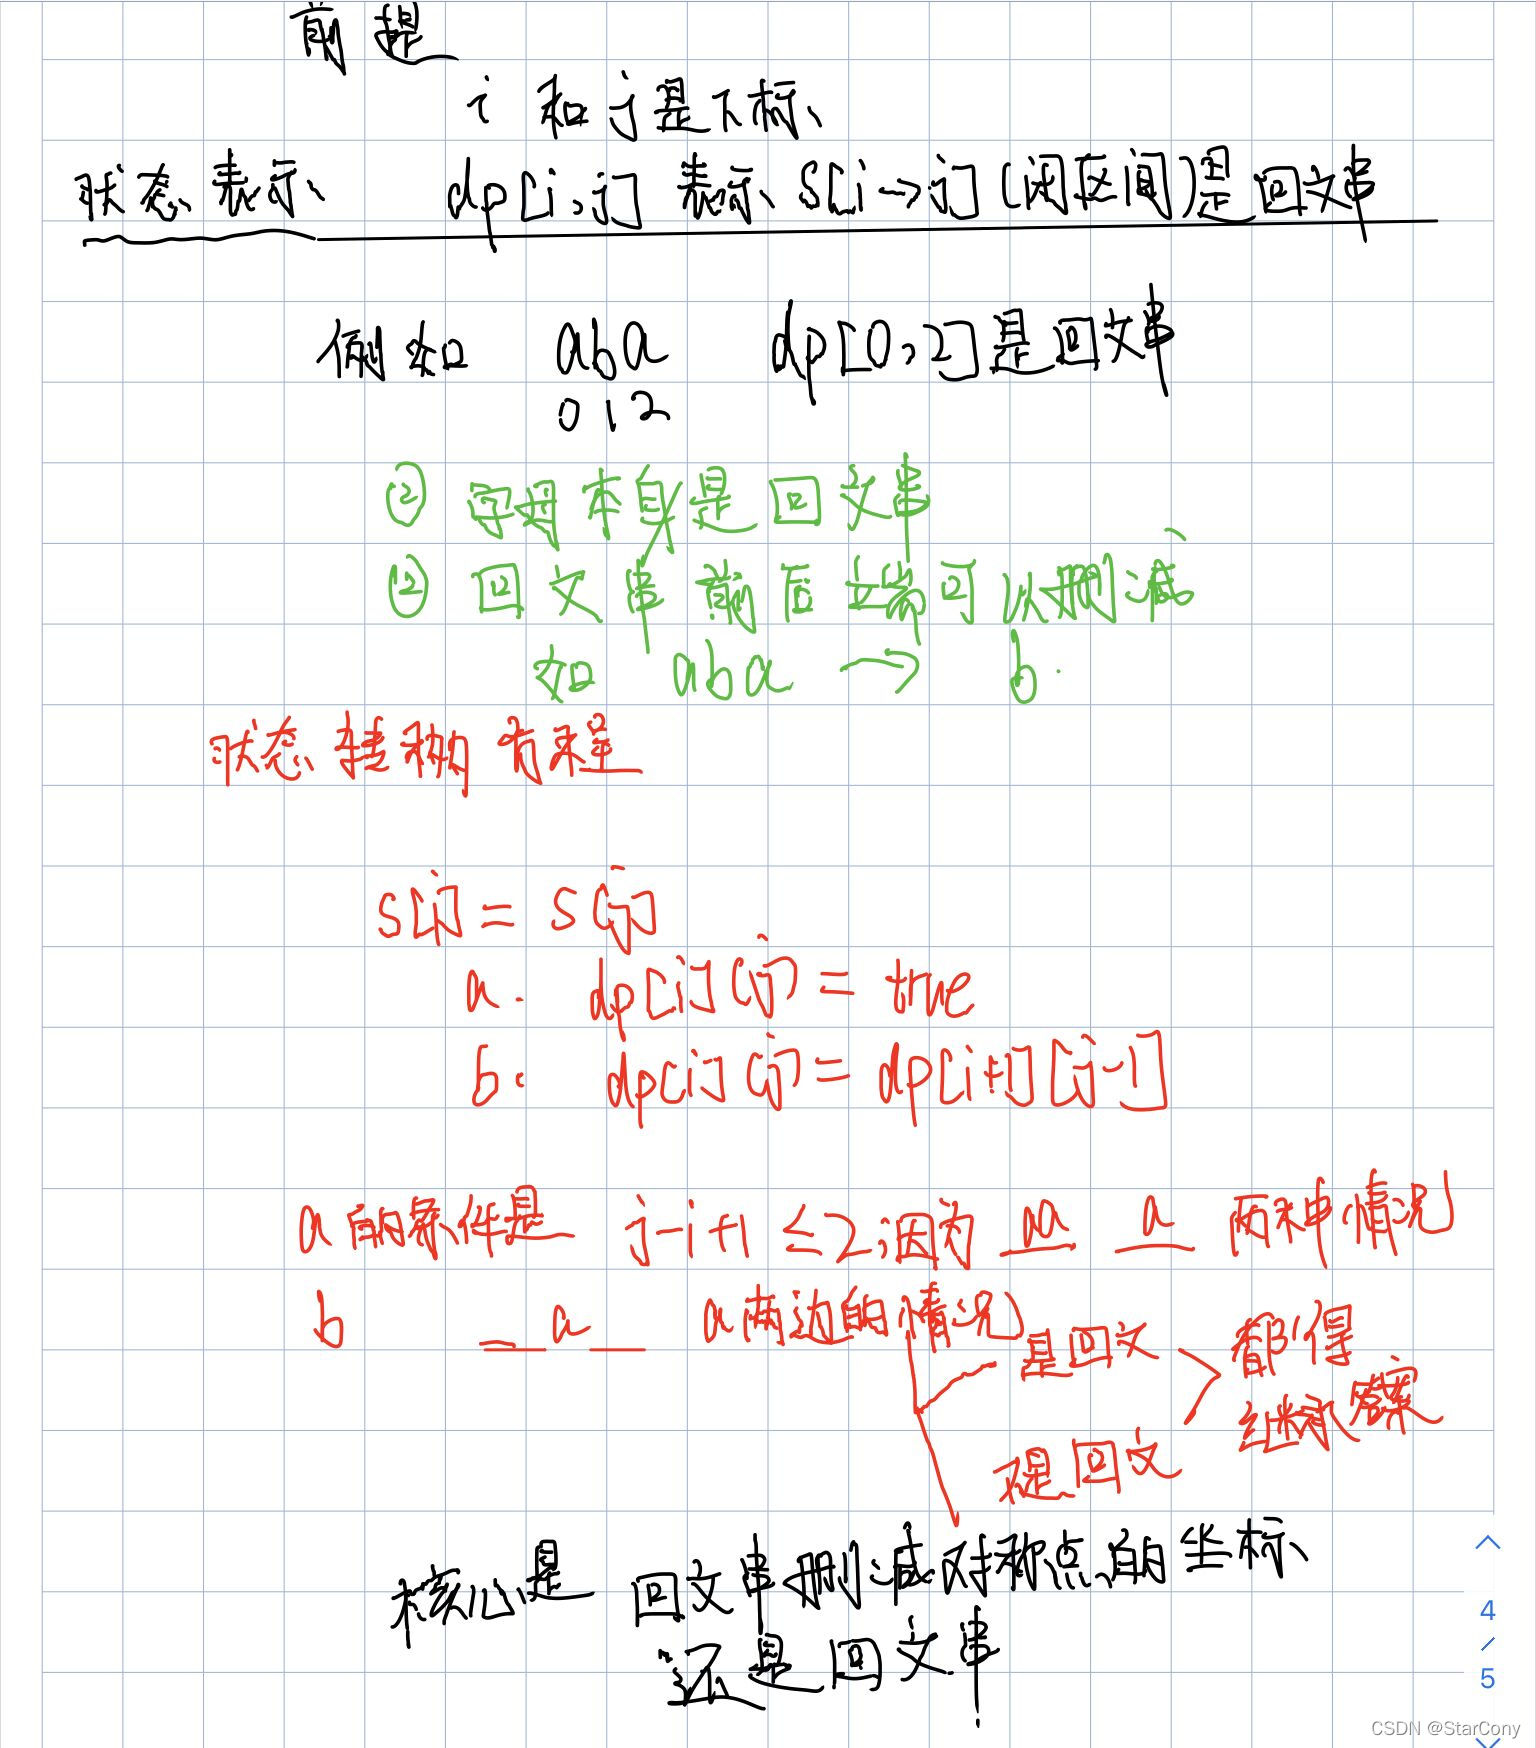 前提
i 和 j 是下标
状态表示 dp[i,j] 表示 s[i→j] (闭区间)是回文串
例如 aba dp[0,2]是回文串
012
② 字母本身是回文串
② 回文串前后端可以删减
如 aba → b.
状态转移方程
s[i] = s[j]
a. dp[i][j] = true
b. dp[i][j] = dp[i+1][j-1]
a的条件是 j-i+1 ≤2,因为 aa a 两种情况
b _ a _ a两边的情况
是回文 都得
继承答案
不是回文
核心是 回文串删减对称点的坐标
还是回文串
4
/
5
CSDN @StarCony